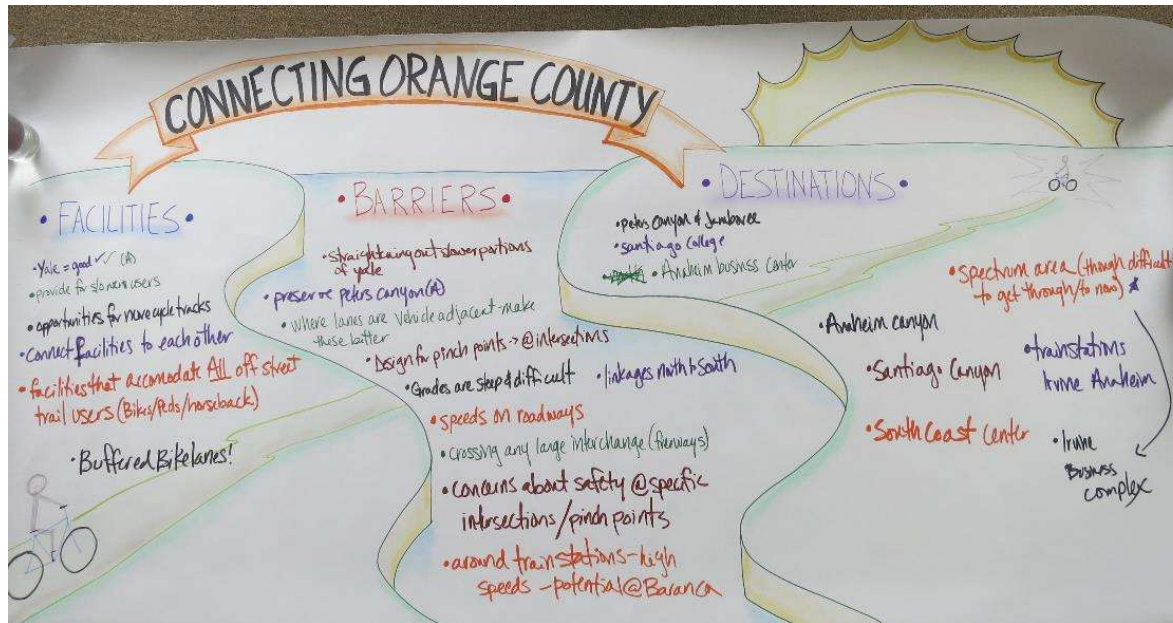 CONNECTING ORANGE COUNTY
• FACILITIES •
• Yale = good ✓✓ (A)
• provide for slower users
• opportunities for more cycle tracks
• Connect facilities to each other
• facilities that accomodate ALL off street
trail users (Bikes/Peds/horseback)
• Buffered Bikelanes!
• BARRIERS •
• straightening out slower portions
of yale
• preserve peters canyon (A)
• where lanes are vehicle adjacent-make
these better
• Design for pinch points -> @ intersections
• Grades are steep & difficult
• linkages north to South
• speeds on roadways
• crossing any large interchange (freeways)
• concerns about safety @ specific
intersections/pinch points
• around trainstations-high
speeds - potential @ Baranca
• DESTINATIONS •
• peters canyon & Jamboree
• santiago college
• Anaheim business center
• spectrum area (though difficult
to get through/to now) *
• Anaheim canyon
• Santiago Canyon
• South Coast Center
• trainstations
Irvine Anaheim
• Irvine
Business
complex